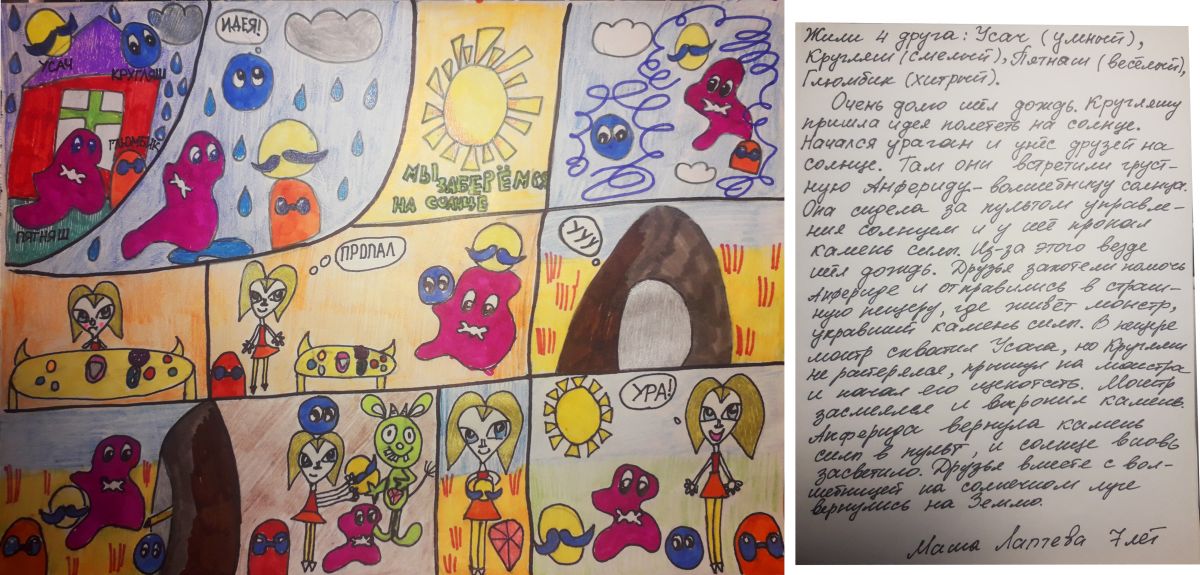 УСАЧ
КРУГЛЯШ
ГЛЮМБИК
ПЯТНАШ
ИДЕЯ!
МЫ
ЗАБЕРЁМСЯ
НА СОЛНЦЕ
ПРОПАЛ
УУУ
УРА!
Жили 4 друга: Усач (умный),
Кругляш (смелый), Пятнаш (весёлый),
Глюмбик (хитрый).
Очень долго шёл дождь. Кругляшу
пришла идея полететь на солнце.
Начался ураган и унёс друзей на
солнце. Там они встретили груст-
ную Анфериду-волшебницу солнца.
Она сидела за пультом управле-
ния солнцем и у неё пропал
камень силы. Из-за этого везде
шёл дождь. Друзья захотели помочь
Анфериде и отправились в страш-
ную пещеру, где живёт монстр,
укравший камень силы. В пещере
монстр схватил Усача, но Кругляш
не растерялся, прыгнул на монстра
и начал его щекотать. Монстр
засмеялся и выронил камень.
Анферида вернула камень
силы в пульт, и солнце вновь
засветило. Друзья вместе с вол-
шебницей на солнечном луче
вернулись на Землю.
Маша Лаптева 7 лет